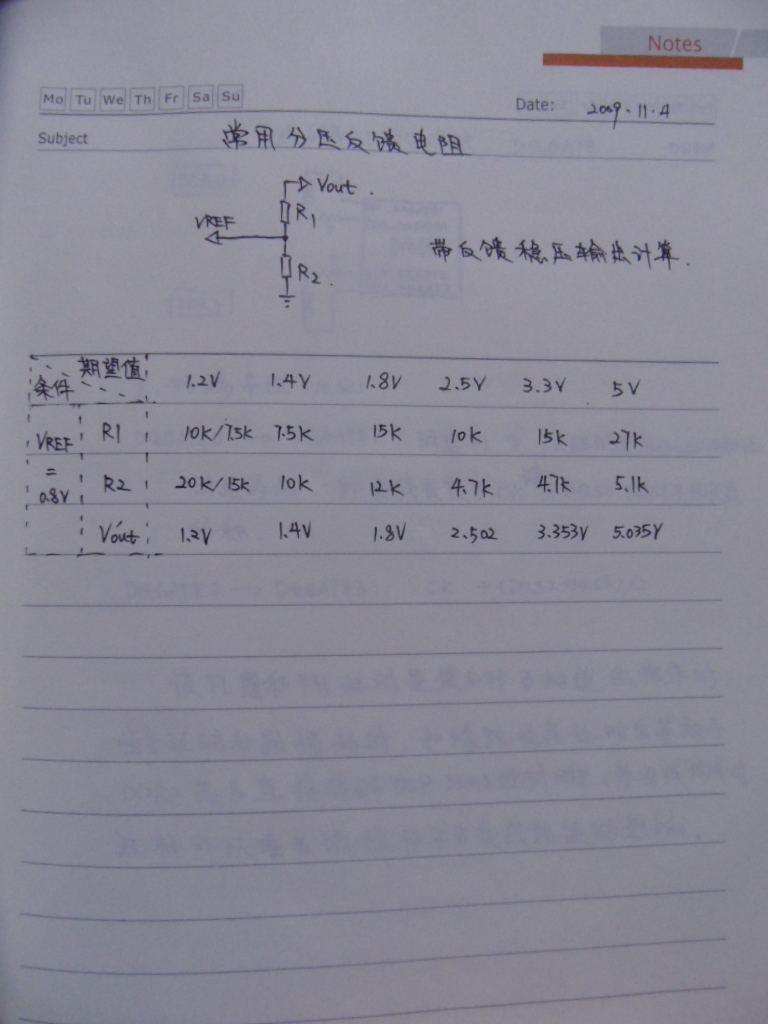 Notes
Mo Tu We Th Fr Sa Su
Date: 2009.11.4
Subject 常用分压反馈电阻
Vout.
R1
VREF
R2.
带反馈稳压输出计算.
期望值 条件 1.2V 1.4V 1.8V 2.5V 3.3V 5V
VREF = 0.8V
R1 10K/7.5K 7.5K 15K 10K 15K 27K
R2 20K/15K 10K 12K 4.7K 47K 5.1K
Vout 1.2V 1.4V 1.8V 2.502 3.353V 5.035V